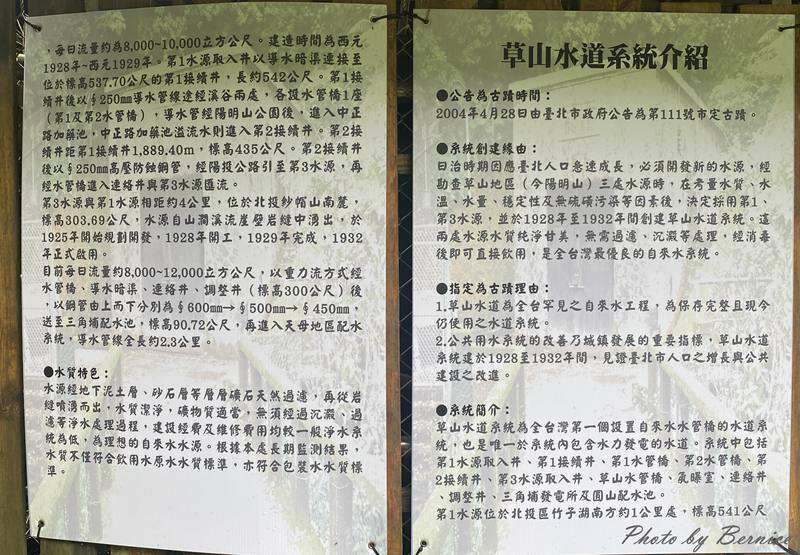 草山水道系統介紹
●公告為古蹟時間：
2004年4月28日由臺北市政府公告為第111號市定古蹟。
●系統創建緣由：
日治時期因應臺北人口急速成長，必須開發新的水源，經
勘查草山地區（今陽明山）三處水源時，在考量水質、水
溫、水量、穩定性及無硫磺污染等因素後，決定採用第1、
第3水源，並於1928年至1932年間創建草山水道系統。這
兩處水源水質純淨甘美，無需過濾、沉澱等處理，經消毒
後即可直接飲用，是全台灣最優良的自來水系統。
●指定為古蹟理由：
1.草山水道為全台罕見之自來水工程，為保存完整且現今
仍使用之水道系統。
2.公共用水系統的改善乃城鎮發展的重要指標，草山水道
系統建於1928至1932年間，見證臺北市人口之增長與公共
建設之改進。
●系統簡介：
草山水道系統為全台灣第一個設置自來水水管橋的水道系
統，也是唯一於系統內包含水力發電的水道。系統中包括
第1水源取入井、第1接續井、第1水管橋、第2水管橋、第
2接續井、第3水源取入井、草山水管橋、氣曝室、連絡井
、調整井、三角埔發電所及圓山配水池。
第1水源位於北投區竹子湖南方約1公里處，標高541公尺
，每日流量約為8,000~10,000立方公尺。建造時間為西元
1928年~西元1929年。第1水源取入井以導水暗渠連接至
位於標高537.70公尺的第1接續井，長約542公尺。第1接
續井後以§250mm導水管線途經溪谷兩處，各設水管橋1座
（第1及第2水管橋），導水管經陽明山公園後，進入中正
路加藥池，中正路加藥池溢流水則進入第2接續井。第2接
續井距第1接續井1,889.40m，標高435公尺。第2接續井
後以§250mm高壓防蝕鋼管，經陽投公路引至第3水源，再
經水管橋進入連絡井與第3水源匯流。
第3水源與第1水源相距約4公里，位於北投紗帽山南麓，
標高303.69公尺，水源自山澗溪流崖壁岩縫中湧出，於
1925年開始規劃開發，1928年開工，1929年完成，1932
年正式啟用。
目前每日流量約8,000~12,000立方公尺，以重力流方式經
水管橋、導水暗渠、連絡井、調整井（標高300公尺）後
，以鋼管由上而下分別為§600mm→§500mm→§450mm，
送至三角埔配水池，標高90.72公尺，再進入天母地區配水
系統，導水管線全長約2.3公里。
●水質特色：
水源經地下泥土層、砂石層等層層礦石天然過濾，再從岩
縫噴湧而出，水質潔淨，礦物質適當，無須經過沉澱、過
濾等淨水處理過程，建設經費及維修費用均較一般淨水系
統為低，為理想的自來水水源。根據本處長期監測結果，
水質不僅符合飲用水水源水質標準，亦符合包裝水水質標
準。
Photo by Bernice